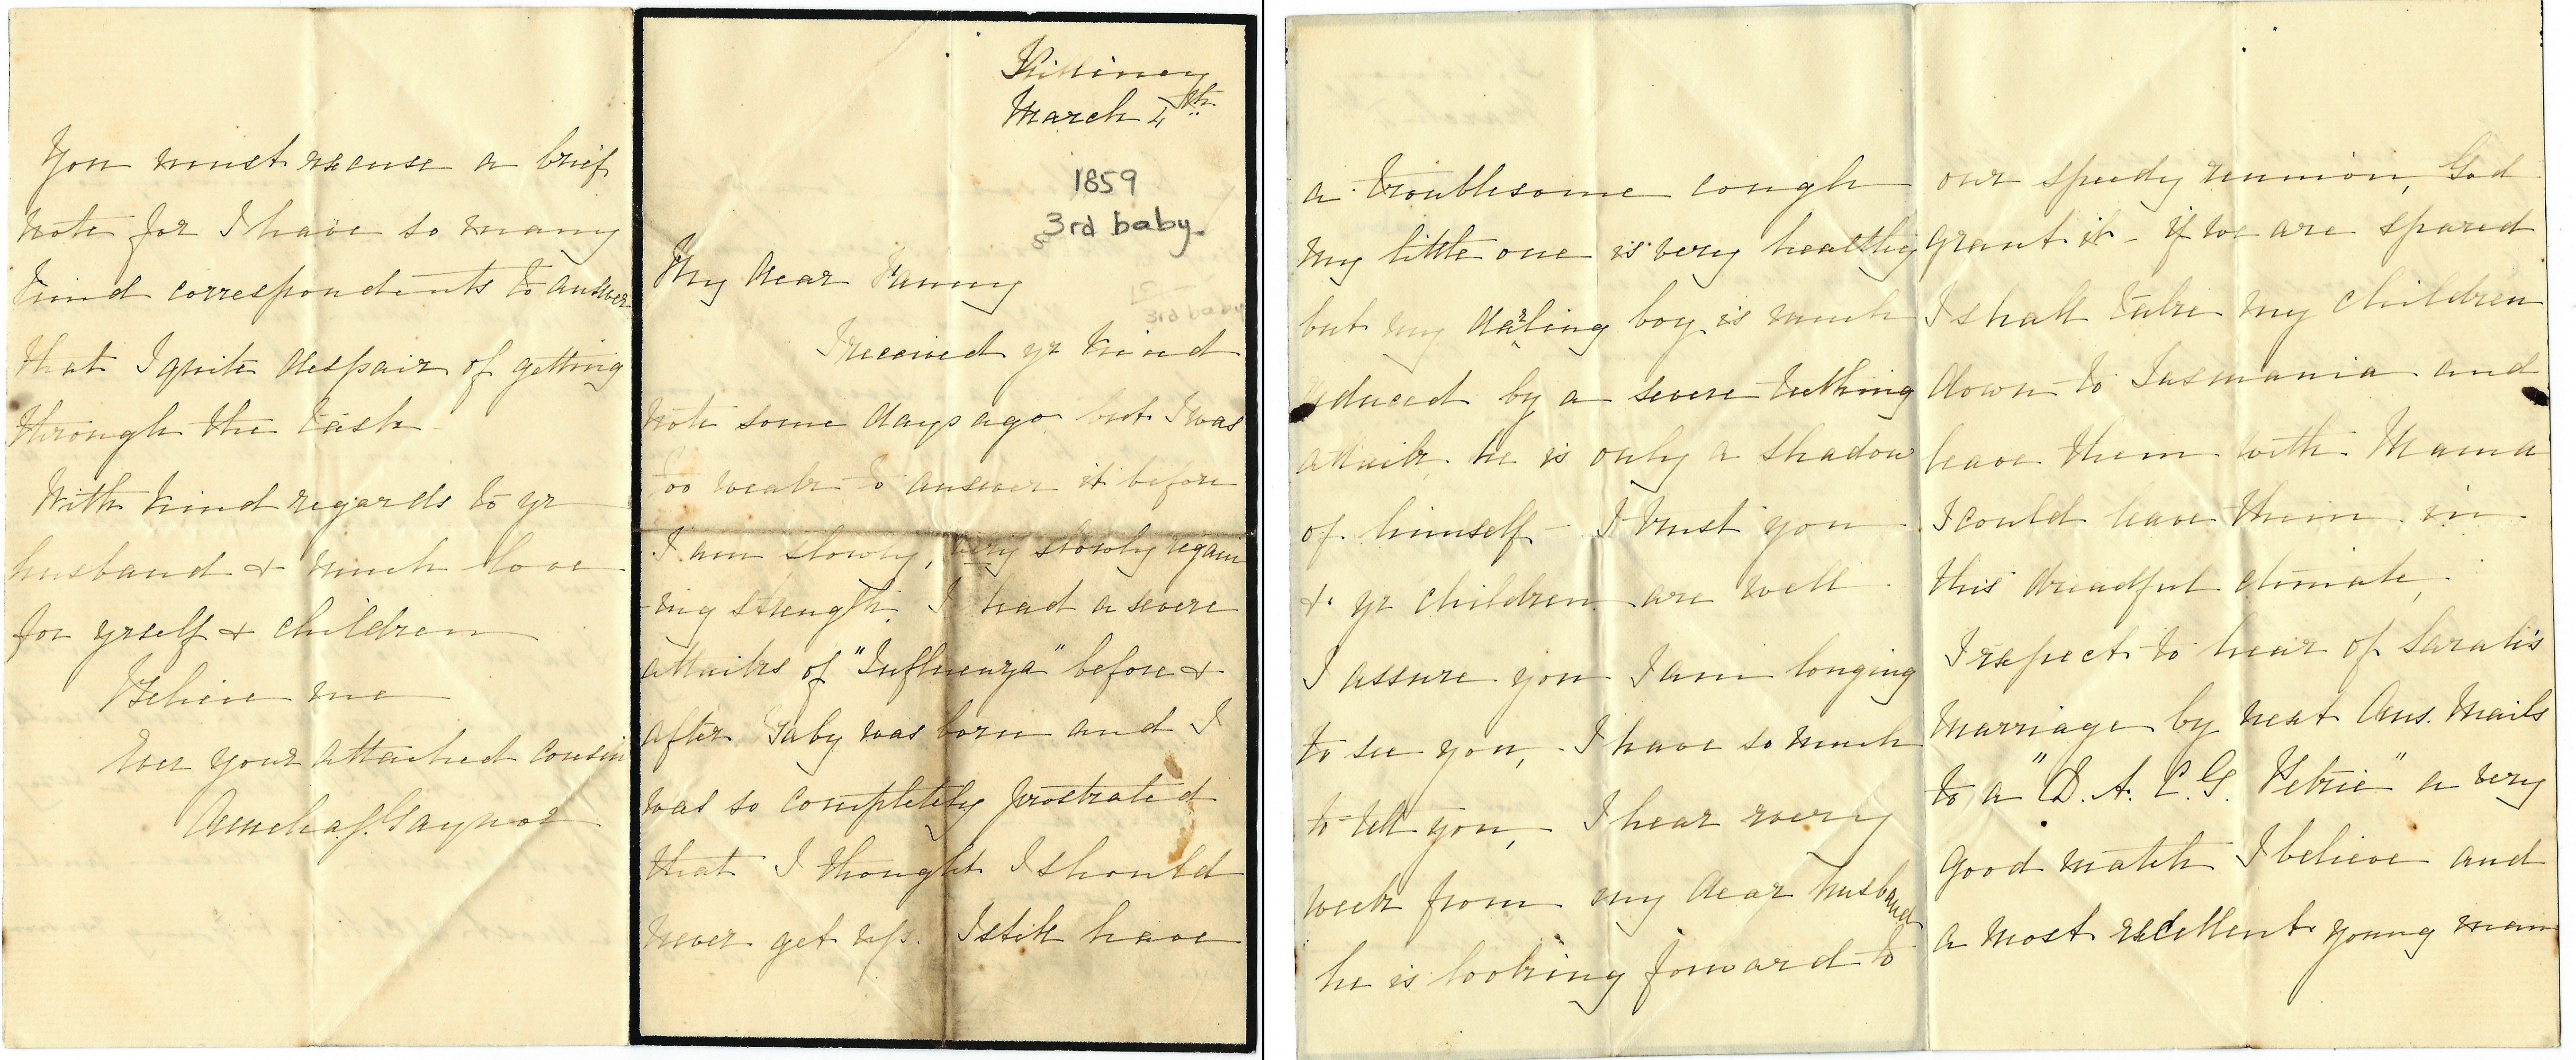 Killiney
March 4th
1859
3rd baby.
My dear Fanny
I received yr kind
note some days ago but I was
too weak to answer it before
I am slowly, very slowly regain
-ing strength. I had a severe
attacks of "Influenza" before &
after Baby was born and I
was so completely prostrated
that I thought I should
never get up. I still have
a troublesome cough
my little one is very healthy
but my darling boy is much
reduced by a severe teething
attack. he is only a shadow
of himself - I trust you
& yr children are well
I assure you I am longing
to see you, - I have so much
to tell you, I hear every
week from my dear husband
he is looking forward to
our speedy reunion, God
grant it - if we are spared
I shall take my children
down to Tasmania and
leave them with Mama
I could leave them in
this dreadful climate,
I expect to hear of Sarah's
marriage by next Aus. Mails
to a "D. A. C. G. Petrie" a very
good match I believe and
a most excellent young man
You must excuse a brief
note for I have so many
kind correspondents to answer
that I quite despair of getting
through the task
With kind regards to yr
husband & much love
for yrself & children
Believe me
Ever your attached cousin
Gaynor